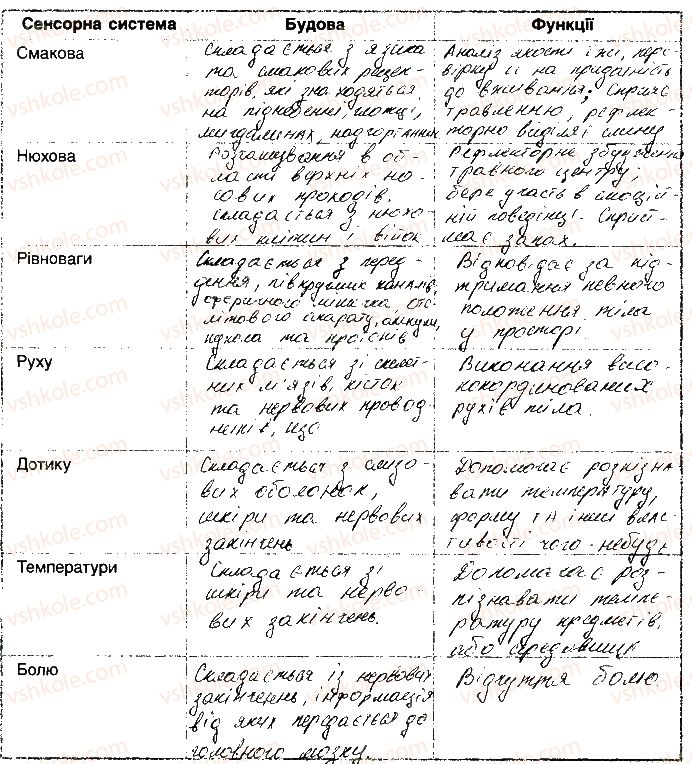 Сенсорна система Будова Функції
Смакова
Складається з язика
та смакових рецеп-
торів, які знаходяться
на піднебінні, глотці,
мигдалинах, надгортаннику
Аналіз якості їжі, пере-
вірку її на придатність
до вживання; сприяє
травленню, рефлек-
торно виділяє слину
Нюхова
Розташування в об-
ласті верхніх но-
сових проходів.
Складається з нюхо-
вих клітин і війок
Рефлекторне збудження
травного центру;
бере участь в емоцій-
ній поведінці. Сприй-
має запах.
Рівноваги
Складається з перед-
дення, півкружних каналів,
сферичного мішечка, ото-
літового апарату, ампули,
та протоків
Відповідає за під-
тримання певного
положення тіла
у просторі
Руху
Складається зі скелет-
них м'язів, кісток
та нервових провод-
ників, що
Виконання висо-
кокординованих
рухів тіла.
Дотику
Складається з слизо-
вих оболонок,
шкіри та нервових
закінчень
Допомагає розпізна-
вати температуру,
форму та інші влас-
тивості чого-небудь
Температури
Складається зі
шкіри та нерво-
вих закінчень.
Допомагає роз-
пізнавати темпе-
ратуру предметів
або середовища
Болю
Складається із нервових
закінчень, інформація
від яких передається до
головного мозку.
Відчуття болю
vshkole.com